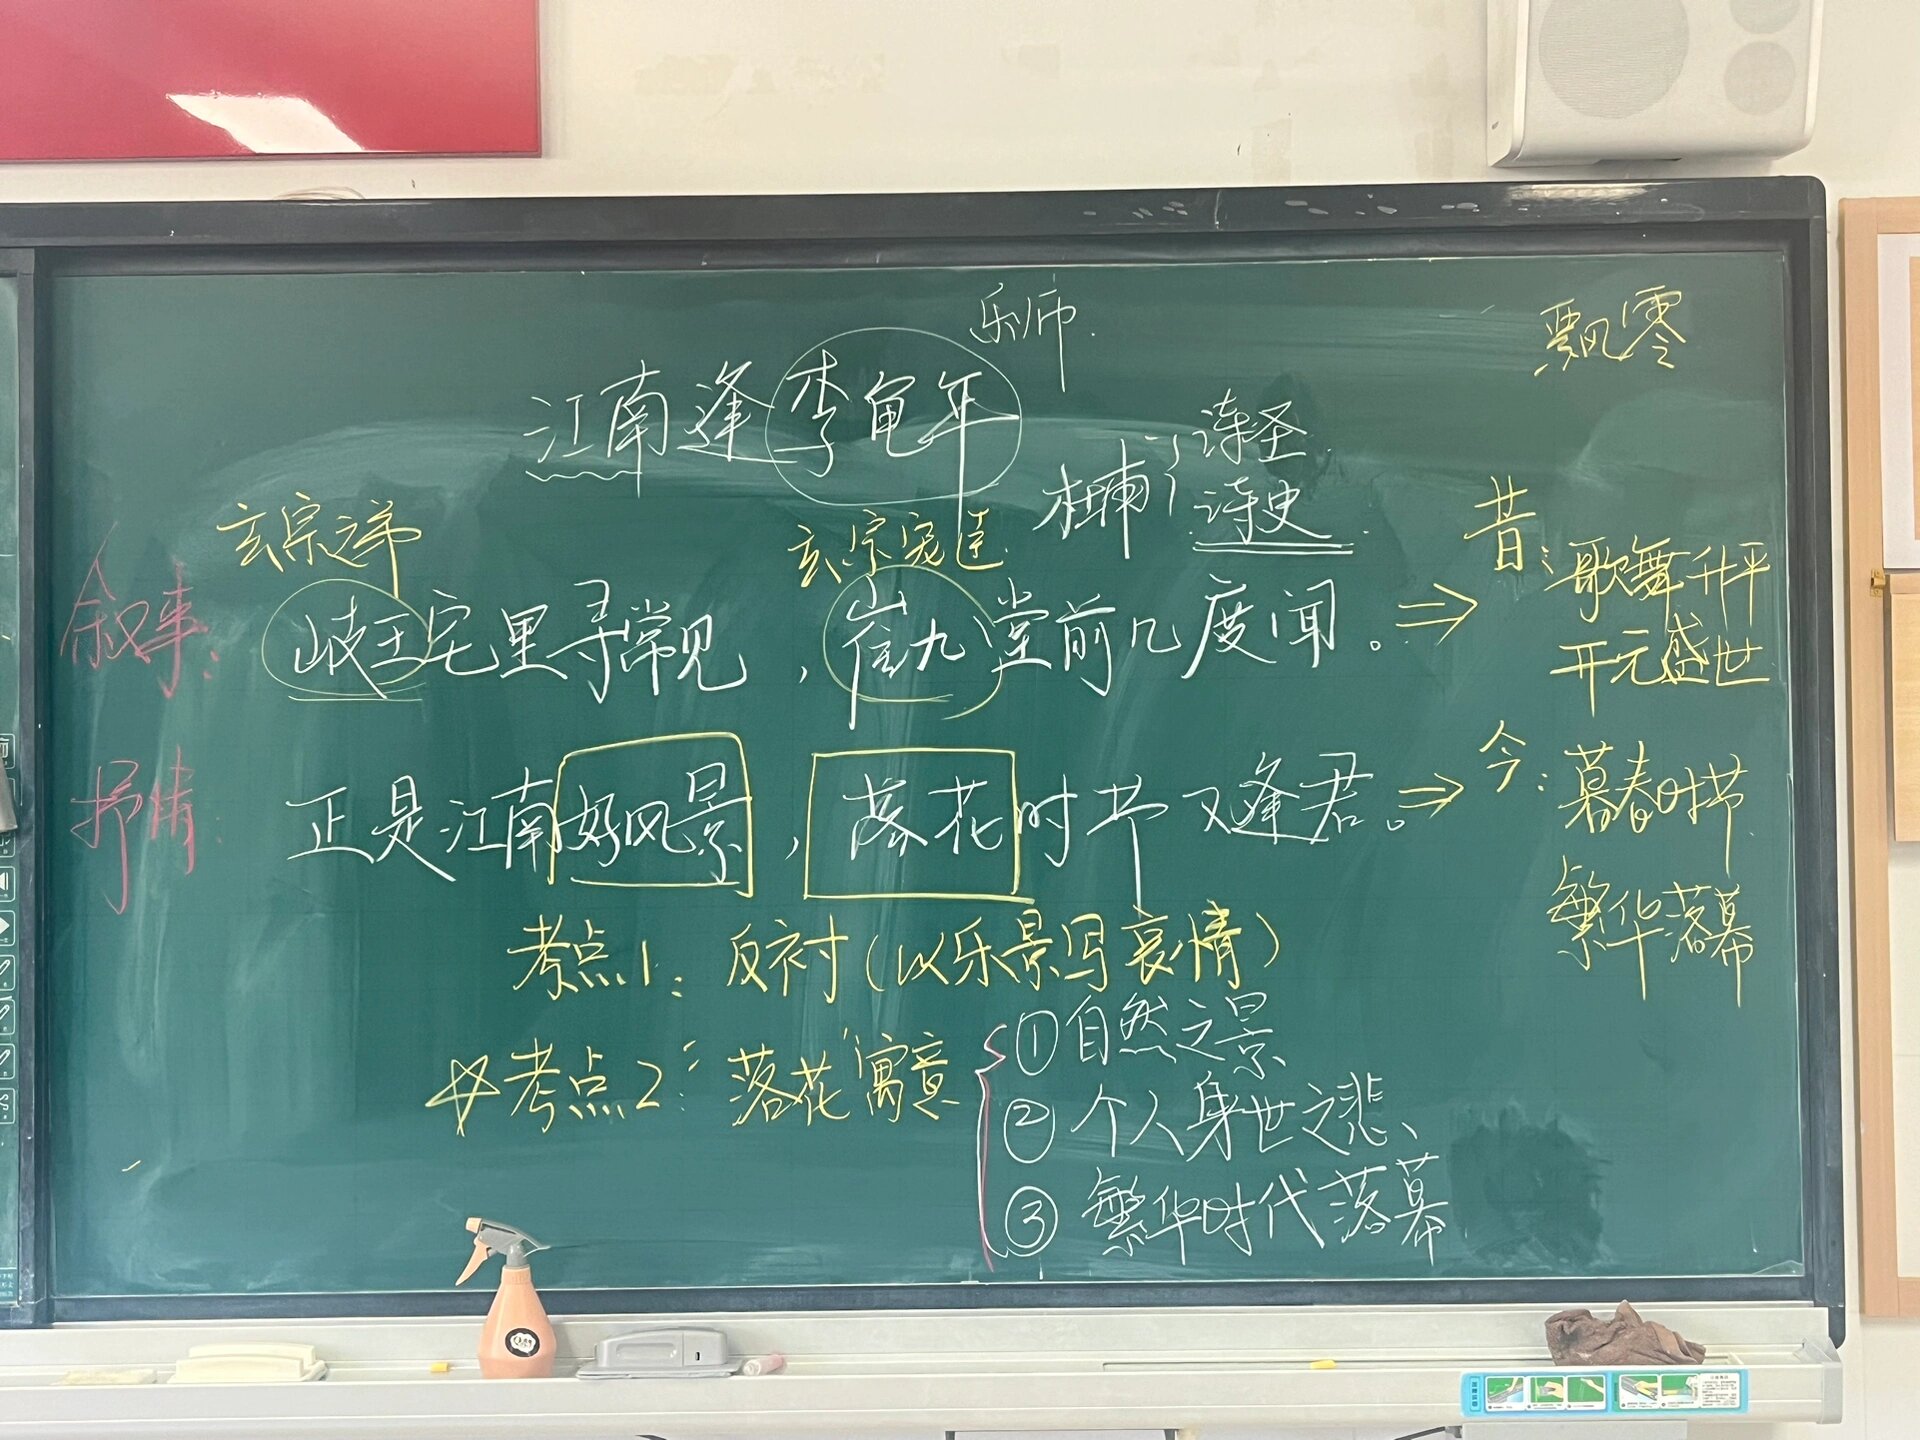 乐师
飘零
江南逢李龟年
杜甫
诗圣
诗史
玄宗之弟
玄宗宠臣
叙事:
岐王宅里寻常见，崔九堂前几度闻。⇒
昔:歌舞升平
开元盛世
抒情:
正是江南好风景，落花时节又逢君。⇒
今:暮春时节
繁华落幕
考点1:反衬(以乐景写哀情)
考点2:"落花"寓意
①自然之景
②个人身世之悲、
③繁华时代落幕